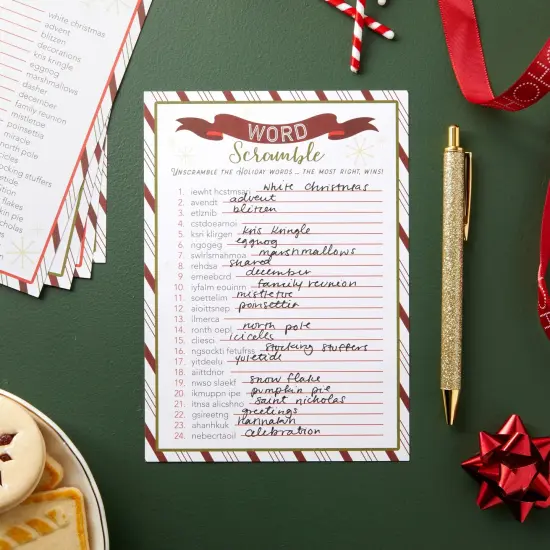 white christmas
advent
blitzen
decorations
kris kringle
eggnog
marshmallows
dasher
december
family reunion
mistletoe
poinsettia
miracle
north pole
icicles
stocking stuffers
yuletide
WORD
Scramble
UNSCRAMBLE THE HOLIDAY WORDS ... THE MOST RIGHT, WINS!
1. iewht hcstmsari white christmas
2. avendt advent
3. etlznib blitzen
4. cstdoearnoi
5. ksri klirgen kris kringle
6. ngogeg eggnog
7. swlrlsmahmoa marshmallows
8. rehdsa shared
9. emeebcrd december
10. iyfalm eouinrn family reunion
11. soettelim mistletoe
12. aioittsnep poinsettia
13. ilmerca
14. ronth oepl north pole
15. cliesci icicles
16. ngsockti fetufrss stocking stuffers
17. yitdeelu yuletide
18. aiittdnior
19. nwso slaekf snow flake
20. ikmuppn ipe pumpkin pie
21. itnsa alicshno saint nicholas
22. gsireetng greetings
23. ahanhkuk Hannakuh
24. nebecrtaoil celebration
HO